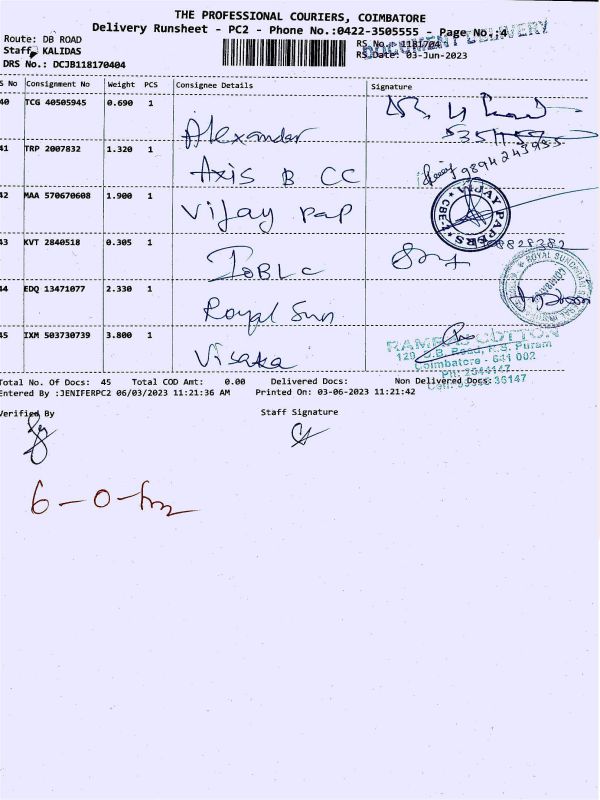 THE PROFESSIONAL COURIERS, COIMBATORE
Delivery Runsheet - PC2 - Phone No.:0422-3505555 - Page No.:4
DOCUMENT DELIVERY
Route: DB ROAD
RS No.: 1181704
Staff: KALIDAS
RS Date: 03-Jun-2023
DRS No.: DCJB118170404
S No Consignment No Weight PCS Consignee Details Signature
40 TCG 40505945 0.690 1 Alexander
41 TRP 2007832 1.320 1 Axis B CC
9894243953
42 MAA 570670608 1.900 1 Vijay Pap
VIJAY PAPERS CBE-2
43 KVT 2840518 0.305 1 IOBLC
44 EDQ 13471077 2.330 1 Royal Sun
ROYAL SUNDARAM
45 IXM 503730739 3.800 1 Visaka
COTTON
129, D.B. Road, R.S. Puram
Coimbatore - 641 002
Total No. Of Docs: 45 Total COD Amt: 0.00 Delivered Docs: Non Delivered Docs:
Entered By :JENIFERPC2 06/03/2023 11:21:36 AM Printed On: 03-06-2023 11:21:42
Verified By Staff Signature